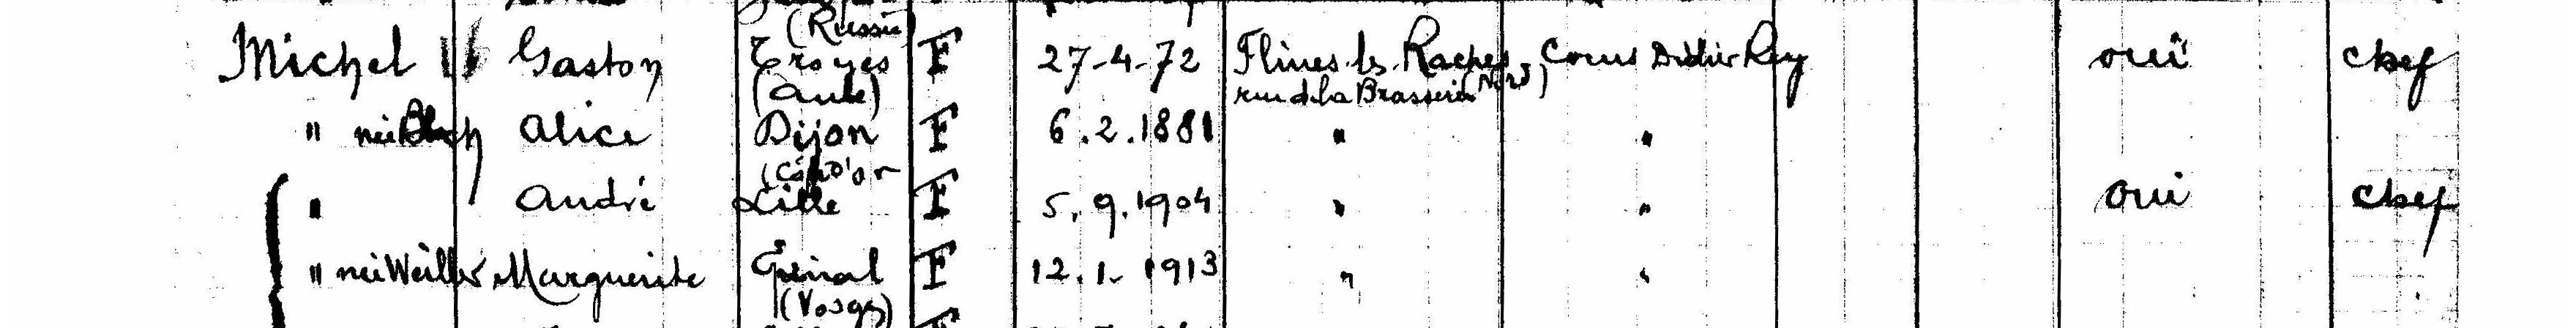 (Russie)
Michel Gaston Troyes F 27-4-72 Flines les Raches Cours Didier Rey oui chef
(Aube) rue de la Brasserie (Nord)
" née Bloch Alice Dijon F 6.2.1881 " "
(Côte d'or
" André Lille F 5.9.1904 " " oui chef
" née Weiller Marguerite Epinal F 12.1.1913 " "
(Vosges)